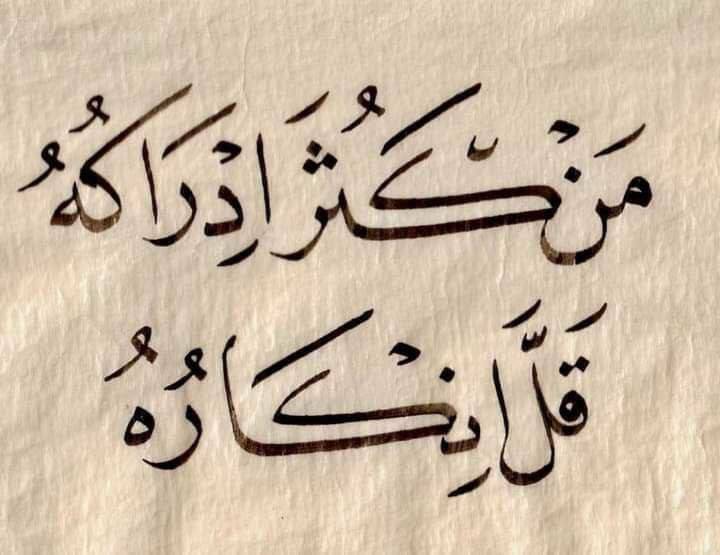 مَنْ كَثُرَ اِدْرَاكُهُ
قَلَّ اِنْكَارُهُ